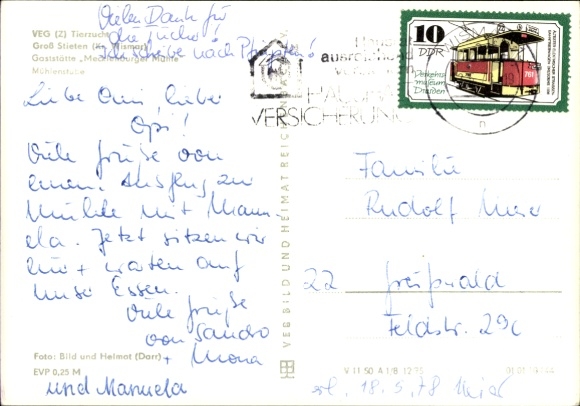 Vielen Dank für
die Tücher!
VEG (Z) Tierzucht
Groß Stieten (Kr. Wismar)
Gaststätte „Mecklenburger Mühle"
Mühlenstube
Ich schreibe nach Pfingsten!
Liebe Omi, lieber
Opi!
Viele Grüße von
einem Ausflug zur
Mühle mit Manu-
ela. Jetzt sitzen wir
hier + warten auf
unser Essen.
Viele Grüße
von Sandro
+ Mona
und Manuela
Foto: Bild und Heimat (Darr)
EVP 0,25 M
VEB BILD UND HEIMAT REICHENBACH
HAUSHALT
VERSICHERUNG
10
DDR
Verkehrs
museum
Dresden
761
Familie
Rudolf
22 Greifswald
Feldstr. 29c
V 11 50 A 1/8 12 75
erl. 18.5.78